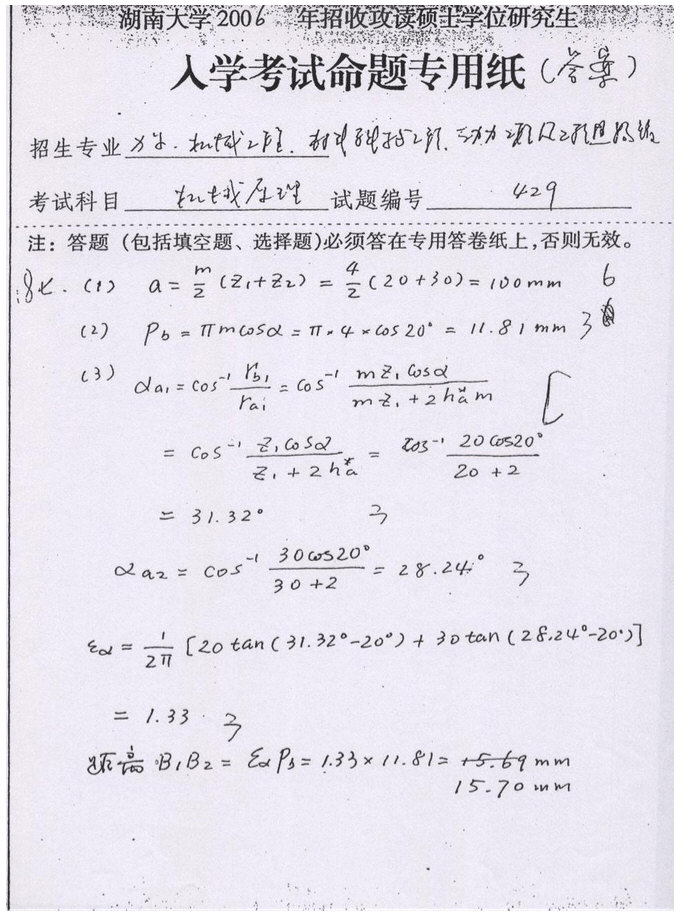 湖南大学 2006 年招收攻读硕士学位研究生
入学考试命题专用纸(答案)
招生专业 力学、机械工程、
考试科目 机械原理 试题编号 429
注: 答题 (包括填空题、选择题)必须答在专用答卷纸上,否则无效。
七. (1) a = m/2 (z₁+z₂) = 4/2 (20+30) = 100 mm 6
(2) P_b = πmcosα = π×4×cos20° = 11.81 mm 3
(3) α_a1 = cos⁻¹ r_b1/r_a1 = cos⁻¹ mz₁cosα/(mz₁+2h*_a m)
= cos⁻¹ z₁cosα/(z₁+2h*_a) = cos⁻¹ 20cos20°/(20+2)
= 31.32° 3
α_a2 = cos⁻¹ 30cos20°/(30+2) = 28.24° 3
ε_α = 1/2π [20tan(31.32°-20°)+30tan(28.24°-20°)]
= 1.33 3
距离 B₁B₂ = ε_α P_b = 1.33×11.81 = 15.69 mm
15.70 mm